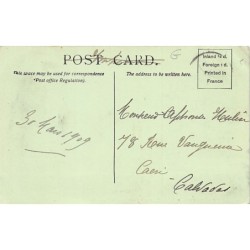 POST CARD.
This space may be used for correspondence
(Post office Regulations).
The address to be written here.
Inland ½d
Foreign 1d
Printed in
France
G
3 Mars 1909
Monsieur Alphonse
78 Rue
Caen
Calvados